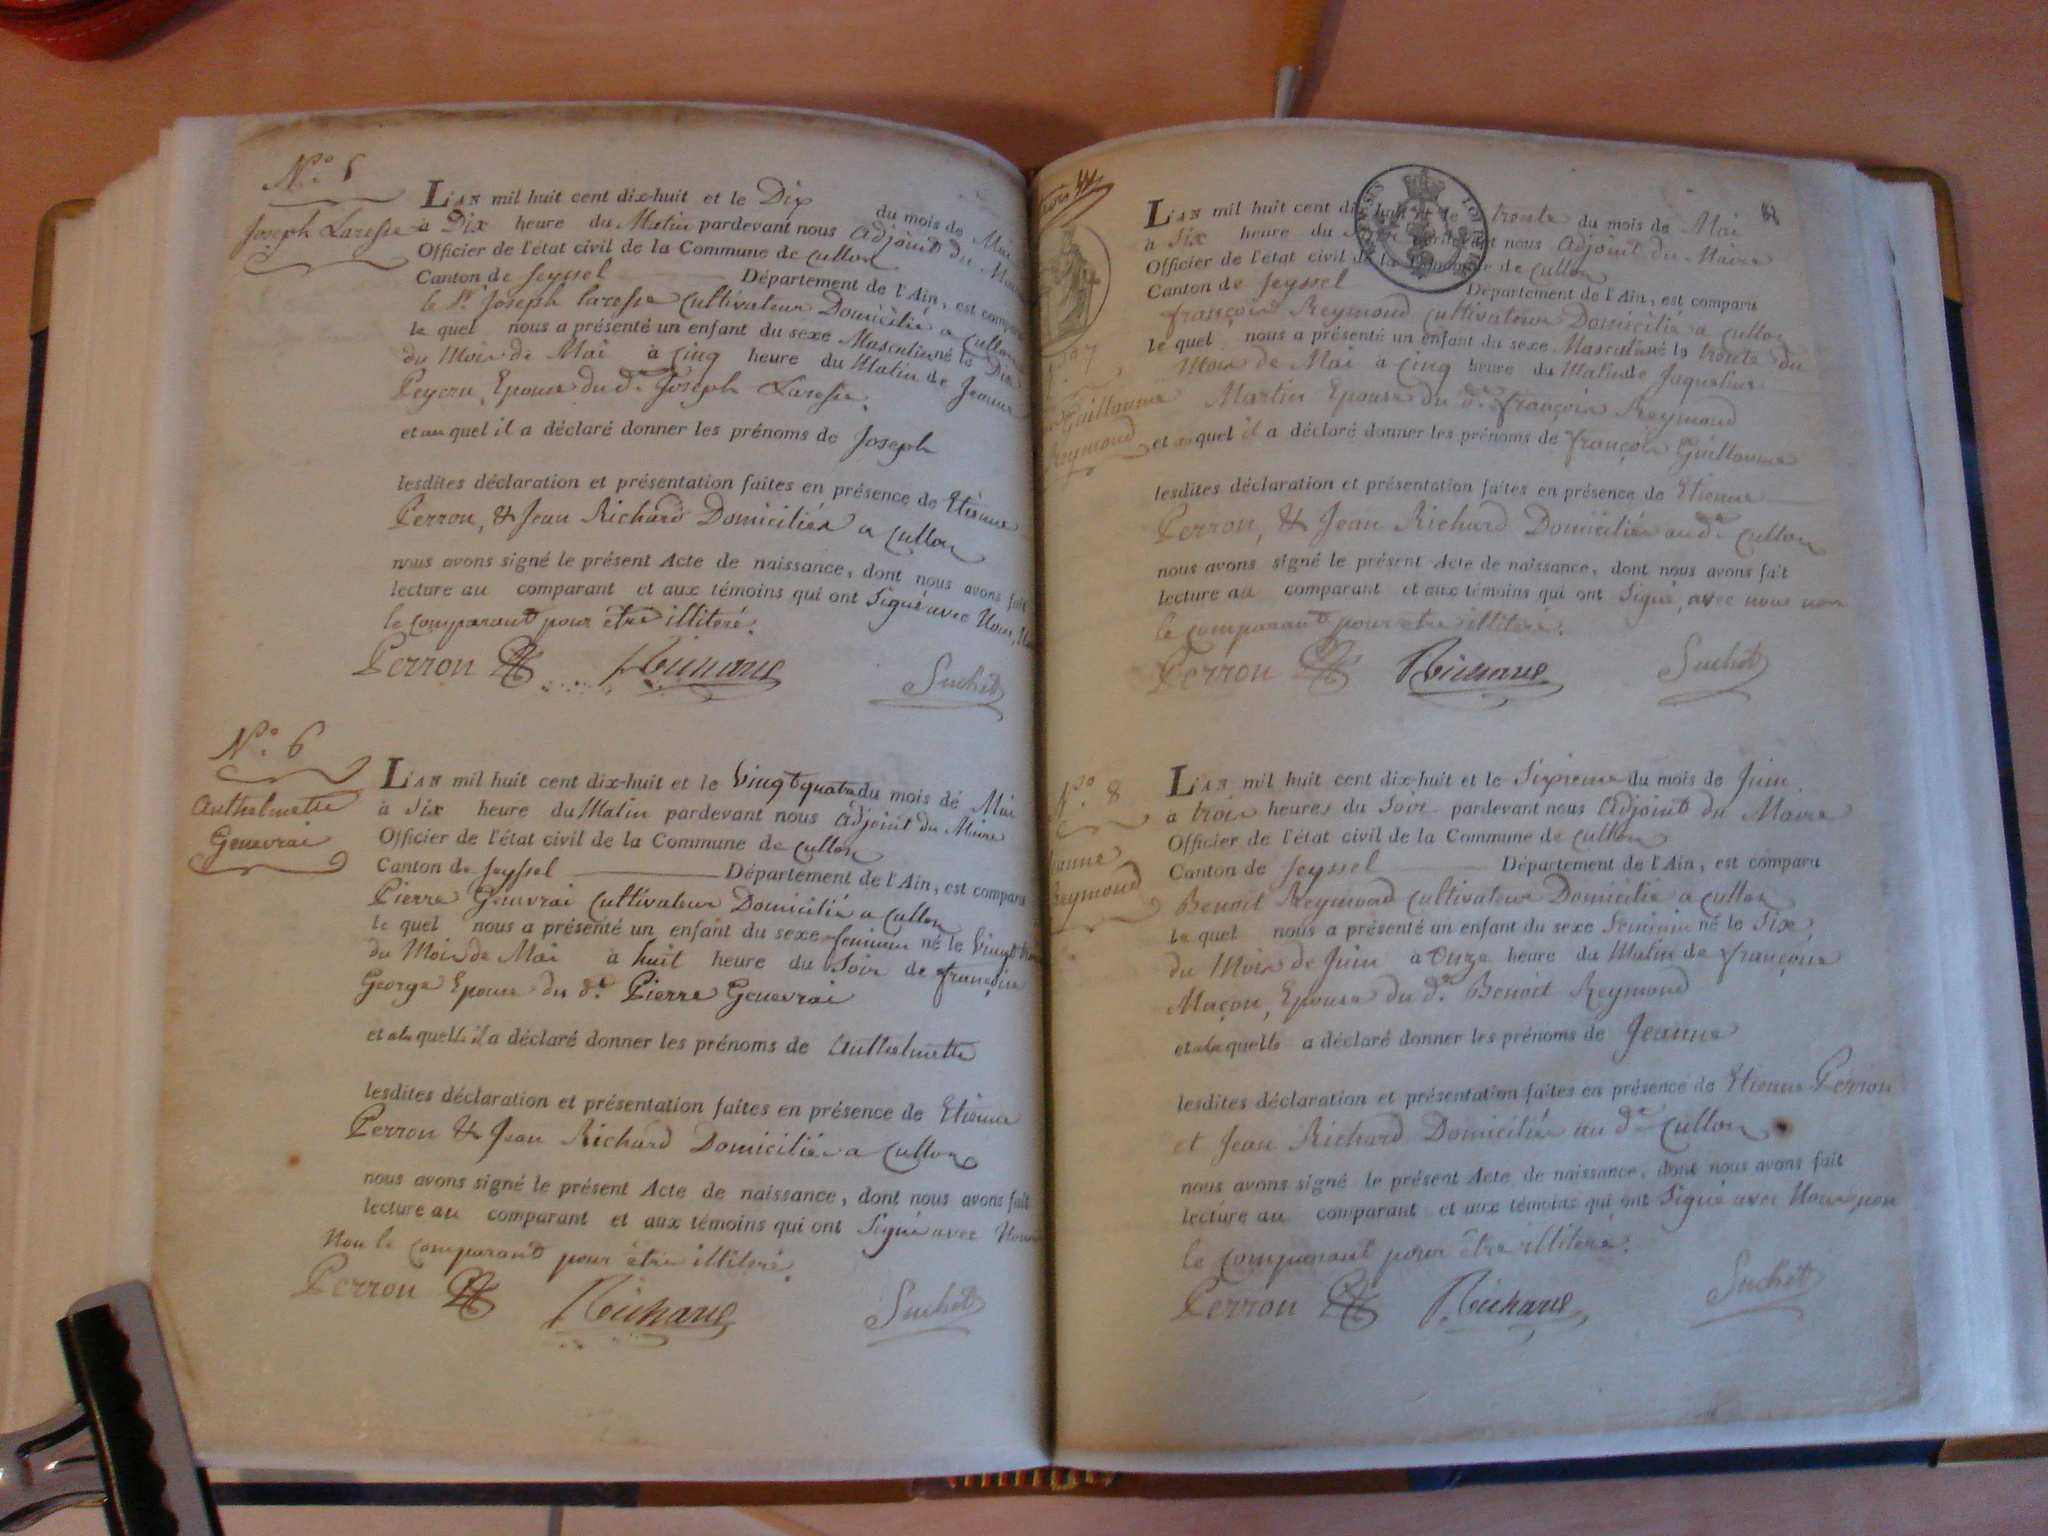 N.° 5
Joseph Laresse
L'AN mil huit cent dix-huit et le Dix du mois de Mai
à Dix heure du Matin pardevant nous adjoint du Maire
Officier de l'état civil de la Commune de Cullon
Canton de Seyssel Département de l'Ain, est comparu
le Sr. Joseph Laresse Cultivateur Domicilié a Cullon
le quel nous a présenté un enfant du sexe Masculin né le Dix
du Mois de Mai à Cinq heure du Matin de Jeanne
Peycru, Epouse du d.t Joseph Laresse,
et au quel il a déclaré donner les prénoms de Joseph
lesdites déclaration et présentation faites en présence de Etienne
Perron, & Jean Richard Domiciliés a Cullon
nous avons signé le présent Acte de naissance, dont nous avons fait
lecture au comparant et aux témoins qui ont Signé avec Nous,
le comparant pour être illitéré.
Perron Richard Suchet
N.° 6
Anthelmette
Genevrai
L'AN mil huit cent dix-huit et le Vingt quatre du mois de Mai
à Six heure du Matin pardevant nous adjoint du Maire
Officier de l'état civil de la Commune de Cullon
Canton de Seyssel Département de l'Ain, est comparu
Pierre Genevrai Cultivateur Domicilié a Cullon
le quel nous a présenté un enfant du sexe feminin né le Vingt
du Mois de Mai à huit heure du Soir de françoise
George Epouse du d.t Pierre Genevrai
et a la quelle il a déclaré donner les prénoms de Anthelmette
lesdites déclaration et présentation faites en présence de Etienne
Perron & Jean Richard Domiciliés a Cullon
nous avons signé le présent Acte de naissance, dont nous avons fait
lecture au comparant et aux témoins qui ont Signé avec Nous
Non le comparant pour être illitéré.
Perron Richard Suchet
7
Guillaume
Reymond
L'AN mil huit cent dix huit et le trente du mois de Mai
à Six heure du pardevant nous adjoint du Maire
Officier de l'état civil de la Commune de Cullon
Canton de Seyssel Département de l'Ain, est comparu
françois Reymond Cultivateur Domicilié a Cullon
le quel nous a présenté un enfant du sexe Masculin né le trente du
Mois de Mai à Cinq heure du Matin de Jaqueline
Martin Epouse du d.t françois Reymond
et au quel il a déclaré donner les prénoms de françois Guillaume
lesdites déclaration et présentation faites en présence de Etienne
Perron, & Jean Richard Domiciliés au d.t Cullon
nous avons signé le présent Acte de naissance, dont nous avons fait
lecture au comparant et aux témoins qui ont Signé, avec nous non
le comparant pour etre illitéré.
Perron Richard Suchet
N.° 8
Jeanne
Reymond
L'AN mil huit cent dix-huit et le Sixieme du mois de Juin
à trois heures du Soir pardevant nous adjoint du Maire
Officier de l'état civil de la Commune de Cullon
Canton de Seyssel Département de l'Ain, est comparu
Benoit Reymond Cultivateur Domicilié a Cullon
le quel nous a présenté un enfant du sexe Feminin né le Six
du Mois de Juin à Onze heure du Matin de françoise
Maçon, Epouse du d.t Benoit Reymond
et a la quelle a déclaré donner les prénoms de Jeanne
lesdites déclaration et présentation faites en présence de Etienne Perron
et Jean Richard Domiciliés au d.t Cullon
nous avons signé le présent Acte de naissance, dont nous avons fait
lecture au comparant et aux témoins qui ont Signé avec Nous, non
le comparant pour être illitéré.
Perron Richard Suchet